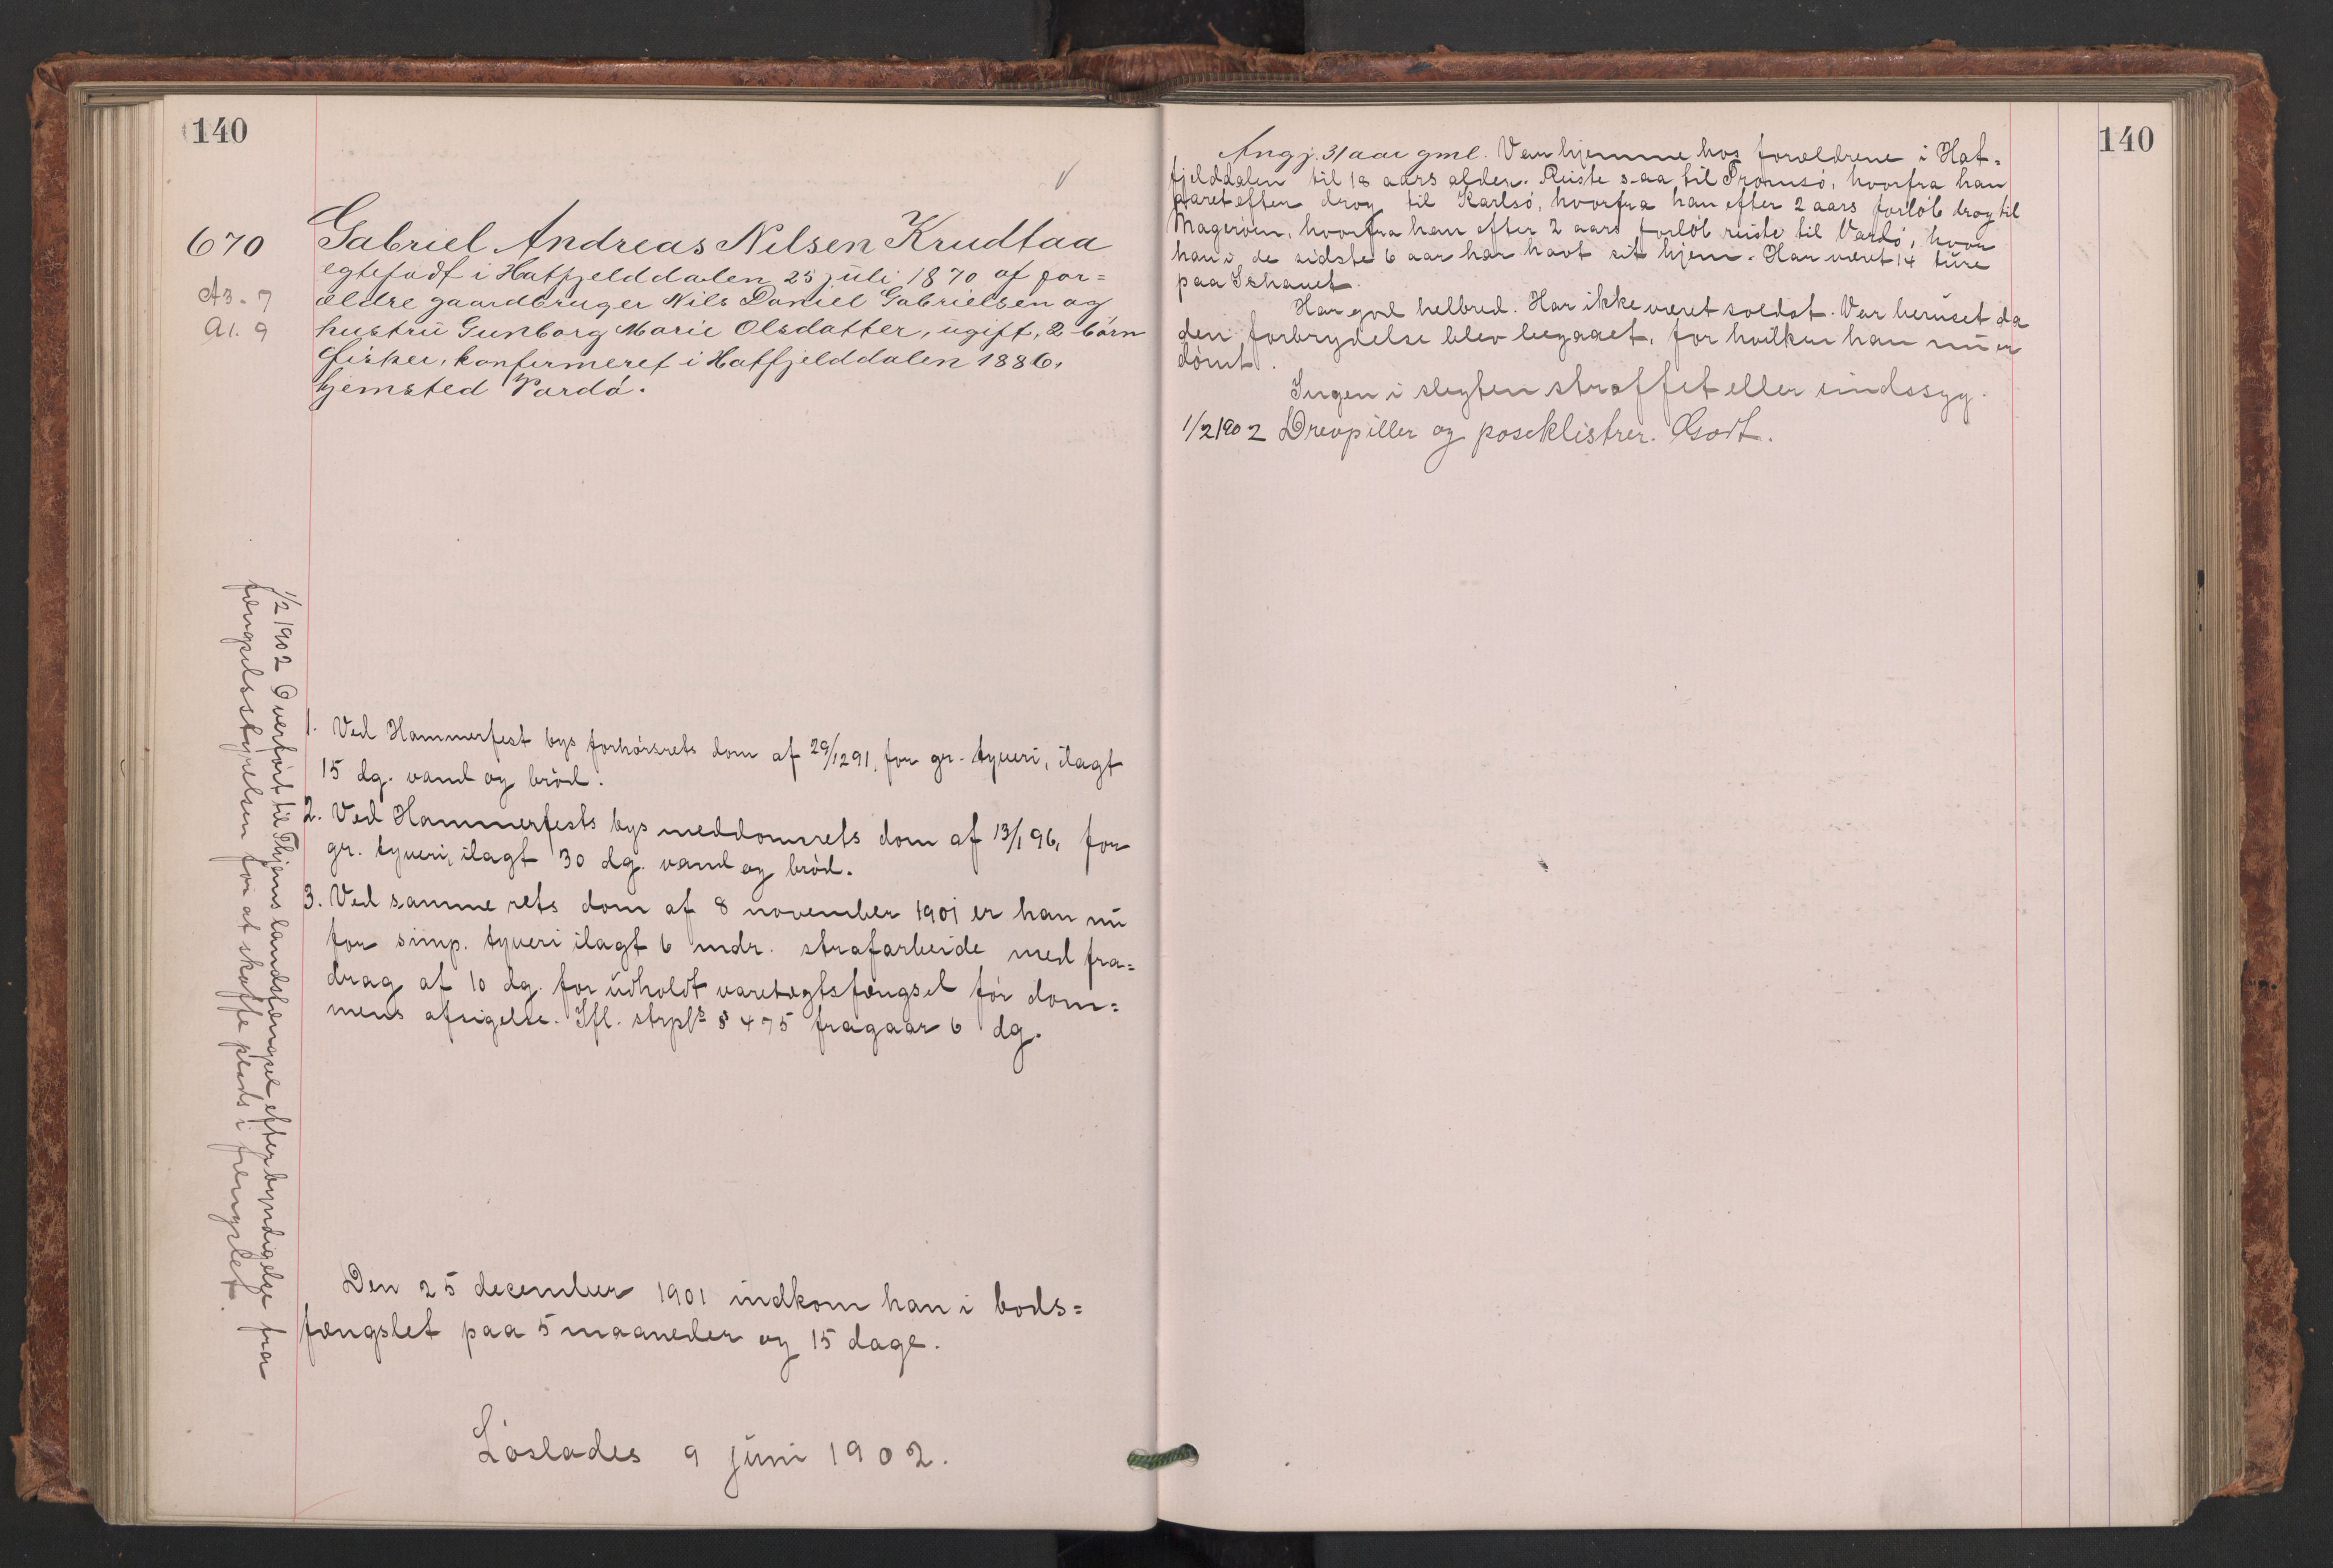 140
670
A3. 7
A1. 9
Gabriel Andreas Nilsen Krudtaa
egtefødt i Hatfjelddalen 25 juli 1870 af for=
ældre gaardbruger Nils Daniel Gabrielsen og
hustru Gunborg Marie Olsdatter, ugift, 2 børn
fisker, konfirmeret i Hatfjelddalen 1886,
hjemsted Vardø.
1. Ved Hammerfest bys forhørsrets dom af 29/12 91, for gr. tyveri, ilagt
15 dg. vand og brød.
2. Ved Hammerfests bys meddomsrets dom af 13/1 96, for
gr. tyveri, ilagt 30 dg. vand og brød.
3. Ved samme rets dom af 8 november 1901 er han nu
for simp. tyveri ilagt 6 mdr. strafarbeide med fra=
drag af 10 dg. for udholdt varetægtsfængsel før dom=
mens afsigelse. Ifl. strpl.s § 475 fragaar 6 dg.
Den 25 december 1901 indkom han i bods=
fængslet paa 5 maaneder og 15 dage.
Løslades 9 juni 1902.
1/2 1902 Overført til Thjems landsfængsel efter bemyndigelse fra
fængselsstyrelsen for at skaffe plads i fængslet.
140
Angj. 31 aar gml. Var hjemme hos forældrene i Hat=
fjelddalen til 18 aars alder. Reiste saa til Tromsø, hvorfra han
straxefter drog til Karlsø, hvorfra han efter 2 aars forløb drog til
Magerøen, hvorfra han efter 2 aars forløb reiste til Vardø, hvor
han i de sidste 6 aar har havt sit hjem. Har været 14 ture
paa Ishavet.
Har god helbred. Har ikke været soldat. Var beruset da
den forbrydelse blev begaaet, for hvilken han nu er
dømt.
Ingen i slegten straffet eller sindssyg.
1/2 1902 Drevpiller og poseklistrer. Godt.